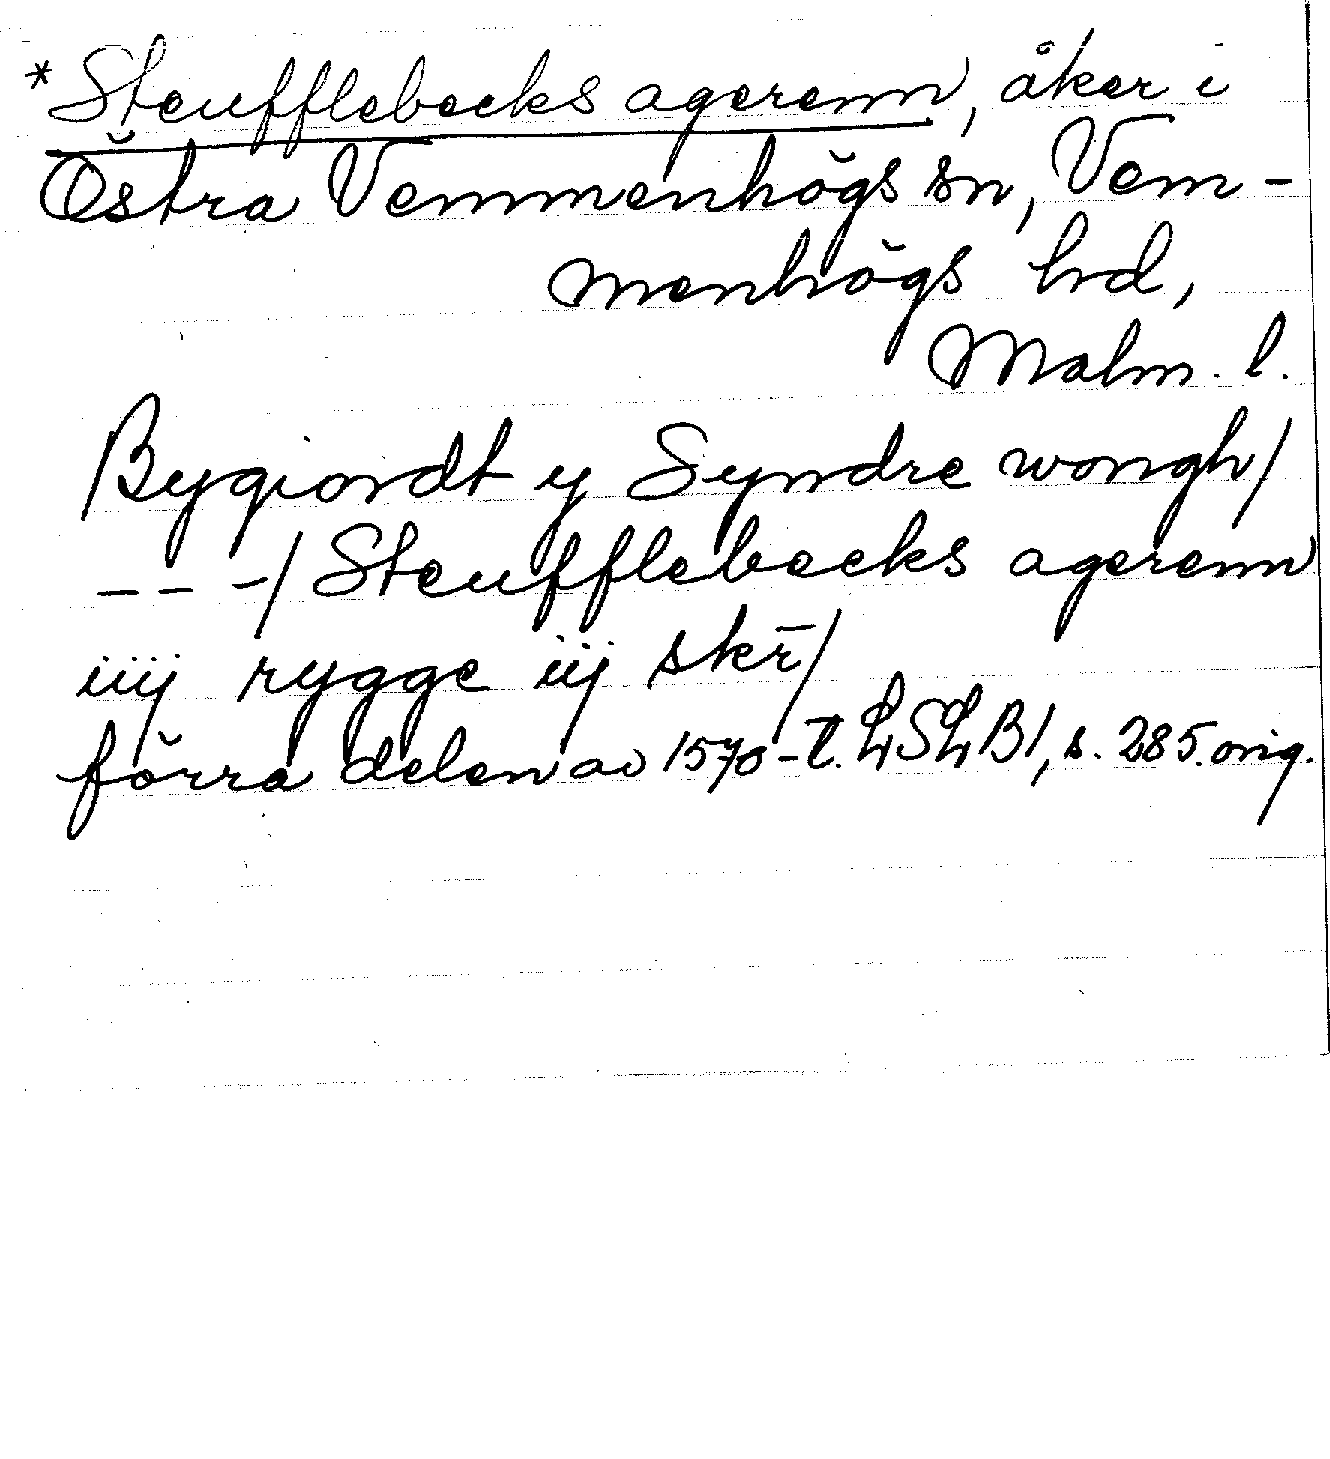 *Steufflebecks agerenn, åker i
Östra Vemmenhögs sn, Vem-
menhögs hd,
Malm. l.
/Bygiordt y Syndre wongh/
- - -/ Steufflebecks agerenn
iiij rygge iij skr̄/
förra delen av 1570-t. LSLB1, s. 285. orig.